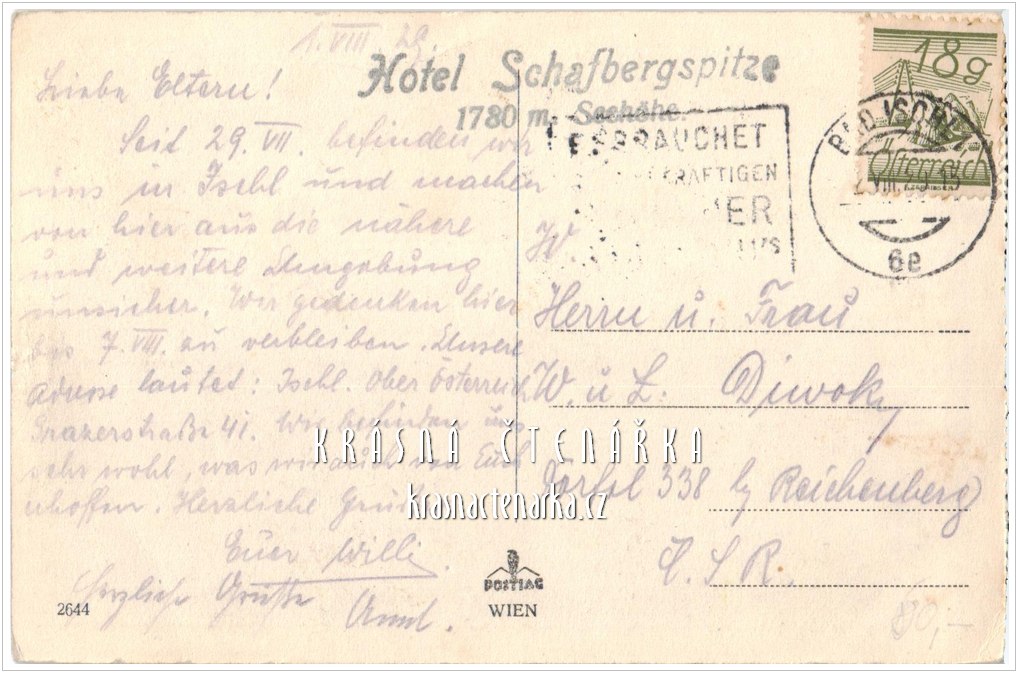 1. VIII. 29.
Hotel Schafbergspitze
1780 m. Seehöhe.
18g
Österreich
BAD ISCHL
6e
BRAUCHET
KRÄFTIGEN
Liebe Eltern!
Seit 29. VII. befinden wir
uns in Ischl und machen
von hier aus die nähere
und weitere Umgebung
unsicher. Wir gedenken hier
bis 7. VIII. zu verbleiben. Unsere
Adresse lautet: Ischl. Ober Österreich
Grazerstraße 41. Wir befinden uns
sehr wohl, was wir auch von Euch
erhoffen. Herzliche Grüße
Euer Willi.
Herzliche Grüße
W.
Herrn u. Frau
W. u L: Diwoky
Dörfel 338 b/ Reichenberg
Č. S. R.
KRÁSNÁ ČTENÁŘKA
krasnactenarka.cz
POSTIAG
WIEN
2644
80,-